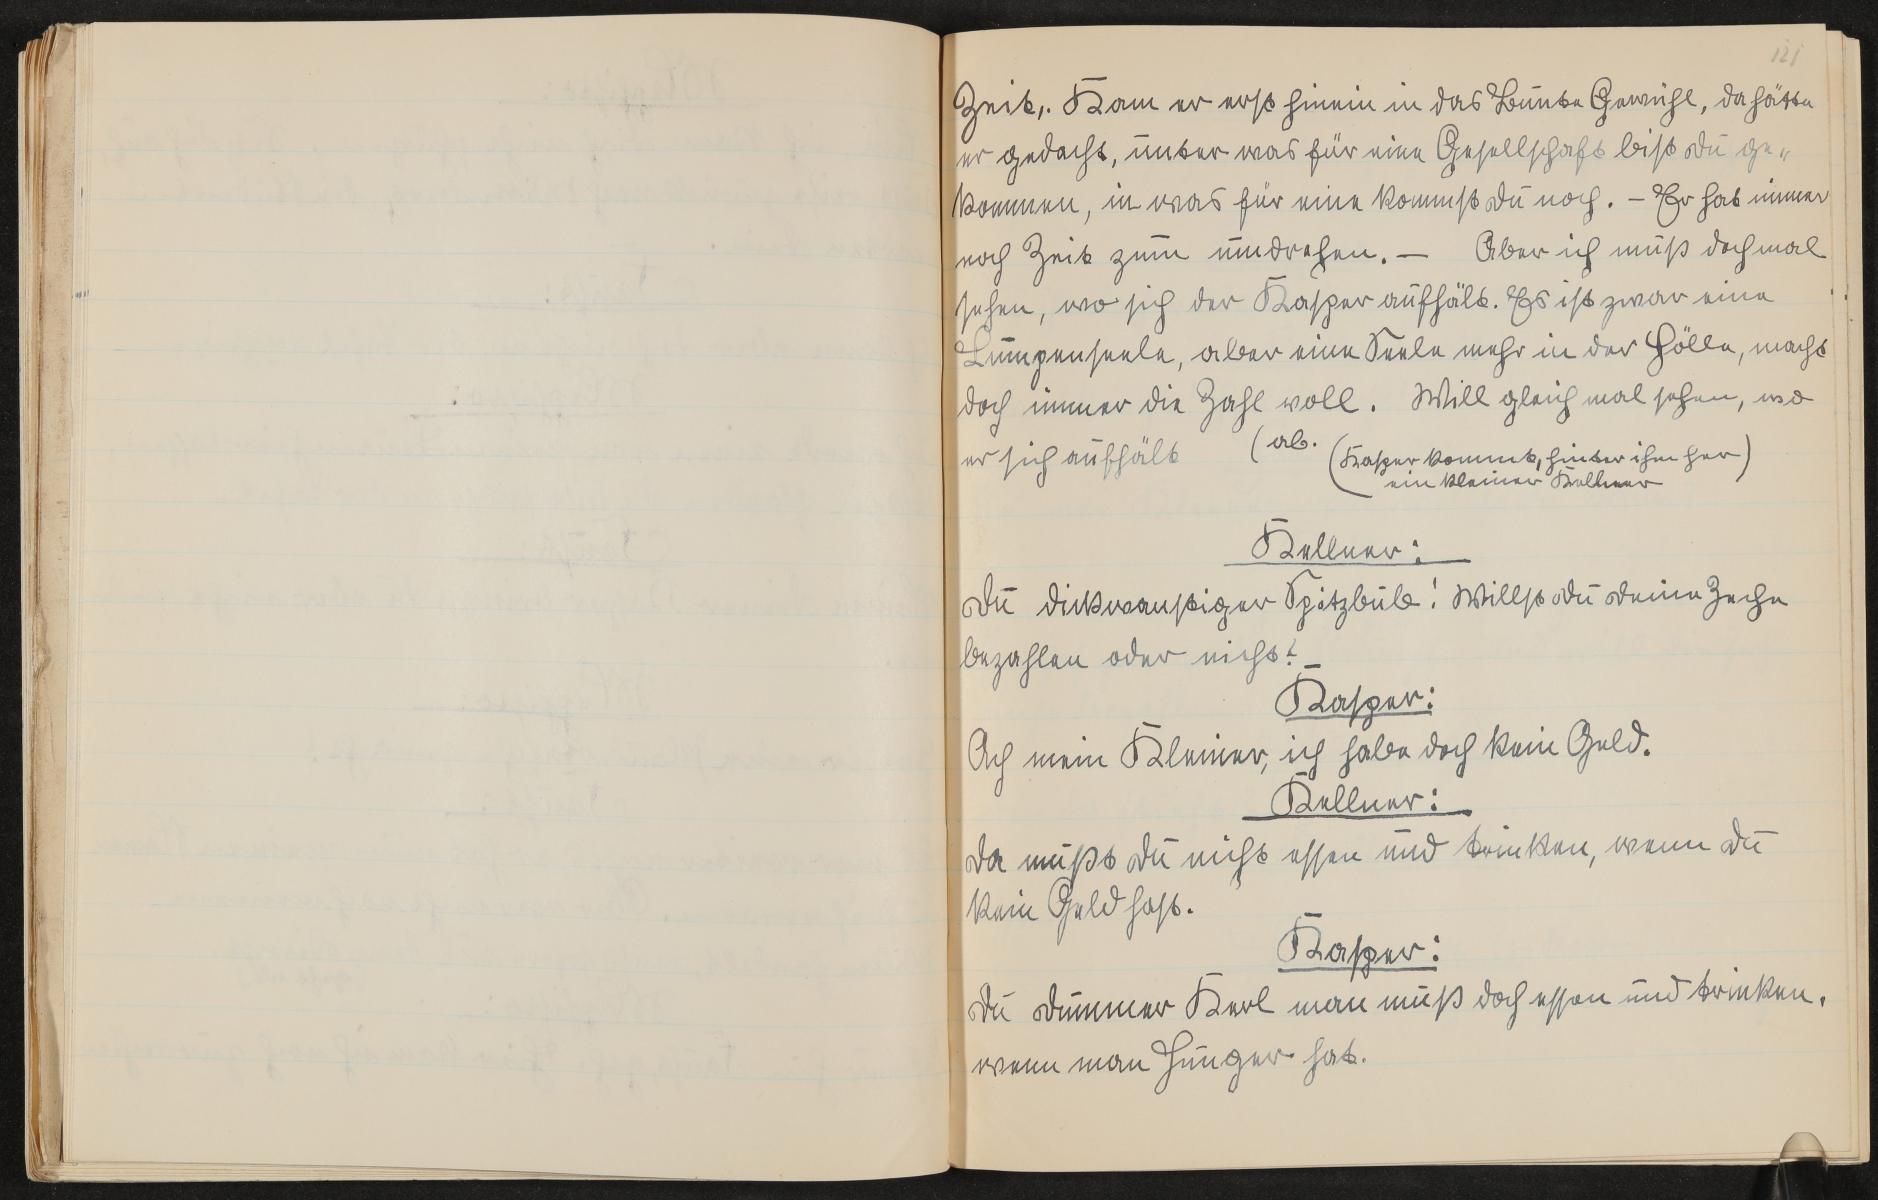 121
Zeit,. Kam er erst hinein in das Bunte Gewühl, da hätte
er gedacht, unter was für eine Gesellschaft bist du ge-
kommen, in was für eine kommst du noch. – Er hat immer
noch Zeit zum umdrehen. – Aber ich muß doch mal
sehen, wo sich der Kasper aufhält. Es ist zwar eine
Lumpenseele, aber eine Seele mehr in der Hölle, macht
doch immer die Zahl voll. Will gleich mal sehen, wo
er sich aufhält (ab. (Kasper kommt, hinter ihm her)
ein kleiner Kellner
Kellner:
Du dickwanstiger Spitzbub! Willst du deine Zeche
bezahlen oder nicht?
Kasper:
Ach mein Kleiner, ich habe doch kein Geld.
Kellner:
Da mußt du nicht essen und trinken, wenn du
kein Geld hast.
Kasper:
Du dummer Kerl man muß doch essen und trinken.
wenn man Hunger hat.